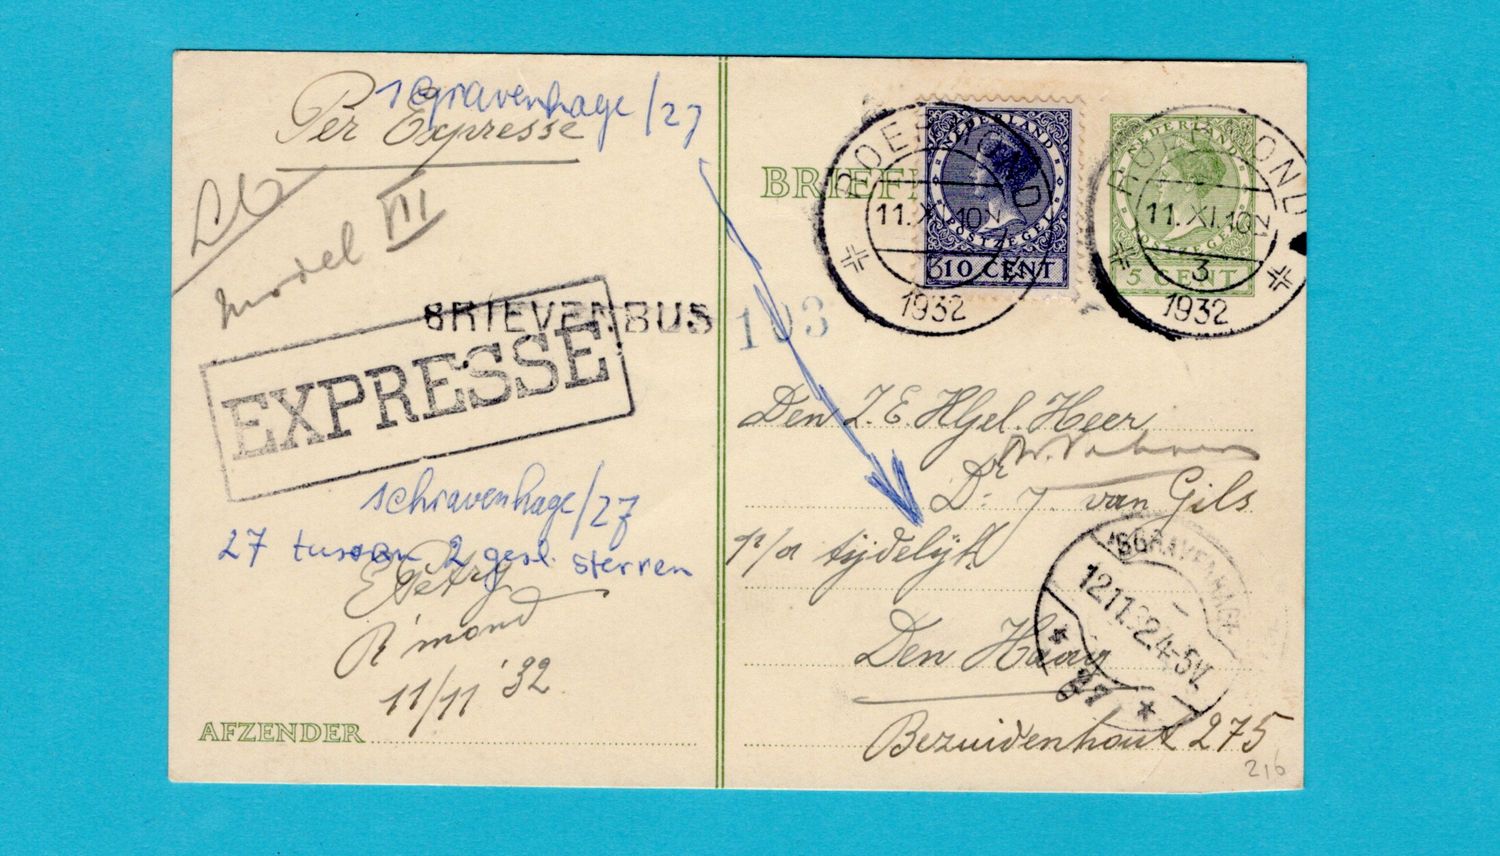 Per Expresse
'sGravenhage/27
Model VII
BRIEVENBUS
EXPRESSE
schravenhage/27
27 tussen 2 gesl. sterren
R'mond
11/11 '32
AFZENDER
BRIEFK
NEDERLAND
POSTZEGEL
10 CENT
ROERMOND
11.XI.10
3
1932
NEDERLAND
POSTZEGEL
5 CENT
ROERMOND
11.XI.10
3
1932
193
Den Z.E. HGel. Heer
Dr. J. van Gils
p/a tijdelijk
Den Haag
Bezuidenhout 275
216
'SGRAVENHAGE
12.11.32.4-5V.
27